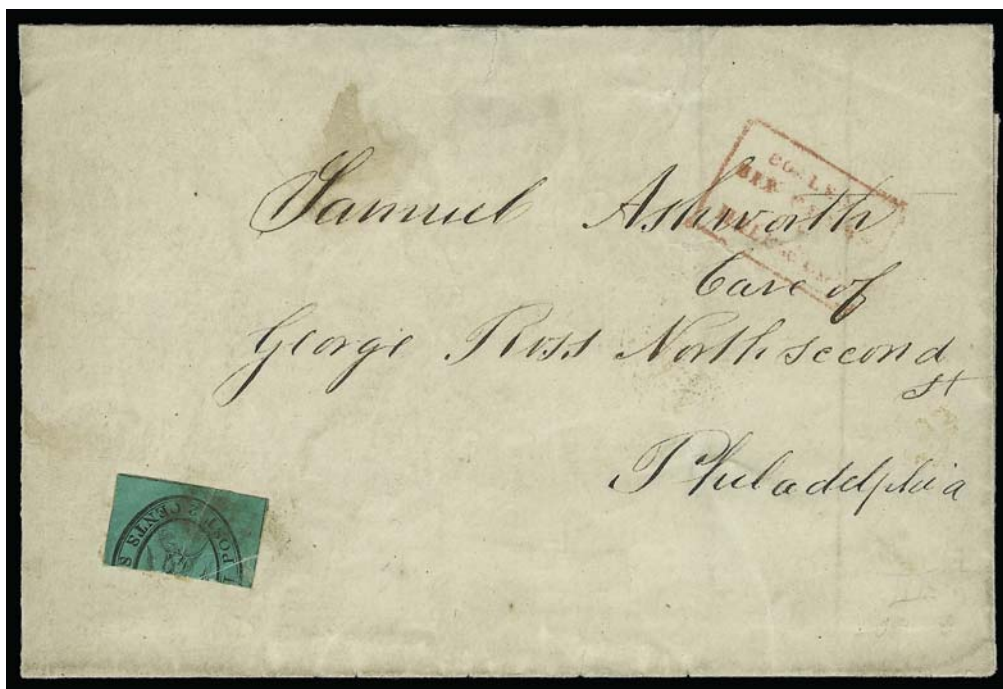 Samuel Ashworth
Care of
George Ross North second
st
Philadelphia
POST 2 CENTS